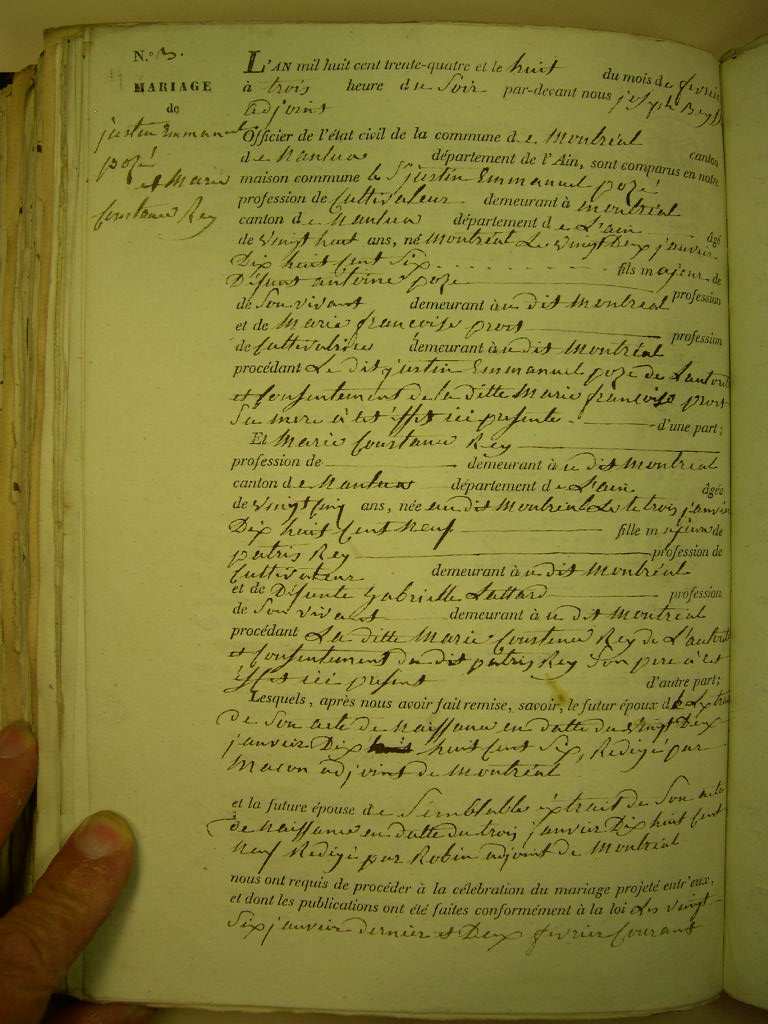 N.o 3.
MARIAGE
de
justin Emmanuel
pozé
et Marie
Constance Rey
L'AN mil huit cent trente-quatre et le huit du mois de fevrier
à trois heure du Soir par-devant nous joseph Rey
adjoint
Officier de l'état civil de la commune de Montréal canton
de Nantua département de l'Ain, sont comparus en notre
maison commune le S. justin Emmanuel pozé
profession de Cultivateur demeurant à montréal
canton de Nantua département de L'ain âgé
de vingt huit ans, né Montréal Le vingt deux janvier
Dix huit Cent Six fils majeur de
Défunt antoine poze profession
de Son vivant demeurant à u dit Montréal
et de Marie françoise prost profession
de Cultivatrice demeurant à u dit Montréal
procédant Le dit justin Emmanuel poze de Lautorité
et Consentement de la ditte Marie françoise prost
Sa mere à cet éffet ici presente d'une part;
Et Marie Constance Rey
profession de demeurant à u dit Montréal
canton de Nantua département de L'ain âgée
de vingt cinq ans, née au dit Montréal Le trois janvier
Dix huit Cent Neuf fille mineure de
patris Rey profession de
Cultivateur demeurant à u dit Montréal
et de Défunte Gabrielle Lattard profession
de Son vivant demeurant à u dit Montréal
procédant La ditte Marie Constance Rey de L'autorité
et Consentement du dit patris Rey Son pere à cet
éffet ici present d'autre part;
Lesquels, après nous avoir fait remise, savoir, le futur époux de Lextrait
de Son acte de Naissance en datte du vingt Deux
janvier Dix huit Cent Six, Redigé par
Macon adjoint de Montréal
et la future épouse de Semblable éxtrait de Son acte
de Naissance en datte du trois janvier Dix huit Cent
Neuf Redigé par Robin adjoint de Montréal
nous ont requis de procéder à la célébration du mariage projeté entr'eux,
et dont les publications ont été faites conformément à la loi Les vingt-
Six janvier dernier et Deux fevrier Courant